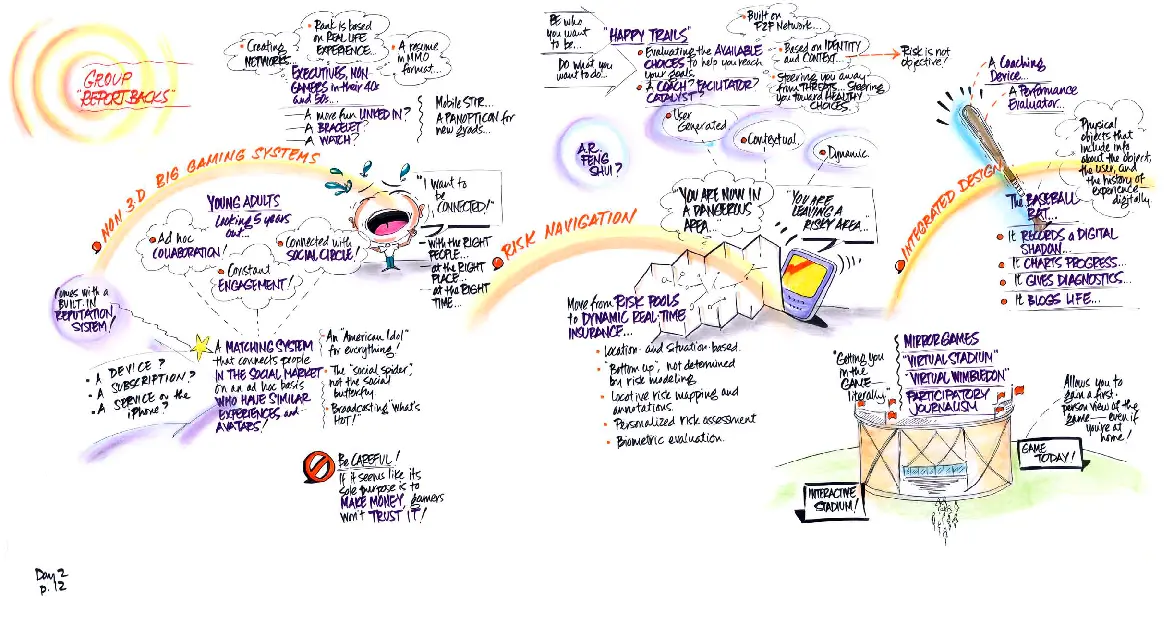 GROUP
"REPORT BACKS"
NON 3-D BIG GAMING SYSTEMS
• Creating
NETWORKS...
• Rank is based
on REAL LIFE
EXPERIENCE...
• A resume
in MMO
format...
EXECUTIVES, NON
GAMERS in their 40s
and 50s...
- A more fun LINKED IN?
- A BRACELET?
- A WATCH?
Mobile STIR...
A PANOPTICON for
new grads...
YOUNG ADULTS
looking 5 years
out...
• Ad hoc
COLLABORATION!
• Constant
ENGAGEMENT!
• Connected with
SOCIAL CIRCLE!
"I want to
be
CONNECTED!"
- with the RIGHT
PEOPLE...
- at the RIGHT
PLACE...
- at the RIGHT
TIME...
Comes with a
BUILT-IN
REPUTATION
SYSTEM!
• A DEVICE?
• A SUBSCRIPTION?
• A SERVICE on the
iPhone?
A MATCHING SYSTEM
that connects people
IN THE SOCIAL MARKET
on an ad hoc basis
WHO HAVE SIMILAR
EXPERIENCES and
AVATARS!
• An "American Idol"
for everything!
• The "social spider",
not the social
butterfly
• Broadcasting "what's
HOT!"
Be CAREFUL!
If it seems like its
sole purpose is to
MAKE MONEY, gamers
won't TRUST IT!
RISK NAVIGATION
BE who
you want
to be...
DO what you
want to do...
"HAPPY TRAILS"
• Evaluating the AVAILABLE
CHOICES to help you reach
your goals.
• A COACH? FACILITATOR?
CATALYST?
• Built on
P2P Network...
• Based on IDENTITY
and CONTEXT...
Risk is not
objective!
• Steering you away
from THREATS... Steering
you toward HEALTHY
CHOICES...
• User
Generated
• Contextual
• Dynamic
A.R.
FENG
SHUI?
"YOU ARE NOW IN
A DANGEROUS
AREA..."
"YOU ARE
LEAVING A
RISKY AREA..."
Move from RISK POOLS
to DYNAMIC REAL-TIME
INSURANCE...
• Location- and situation-based.
• "Bottom up", not determined
by risk modeling
• Locative risk mapping and
annotations.
• Personalized risk assessment
• Biometric evaluation.
INTEGRATED DESIGN
A Coaching
Device...
A Performance
Evaluator...
Physical
objects that
include info
about the object,
the user, and
the history of
experience
digitally
The BASEBALL
BAT...
• It RECORDS a DIGITAL
SHADOW...
• It CHARTS PROGRESS...
• It GIVES DIAGNOSTICS...
• It BLOGS LIFE...
"Getting you
in the
GAME
literally"
MIRROR GAMES
"VIRTUAL STADIUM"
"VIRTUAL WIMBLEDON"
PARTICIPATORY
JOURNALISM
Allows you to
gain a first-
person view of the
game — even if
you're at
home!
GAME
TODAY!
INTERACTIVE
STADIUM!
Day 2
p. 12